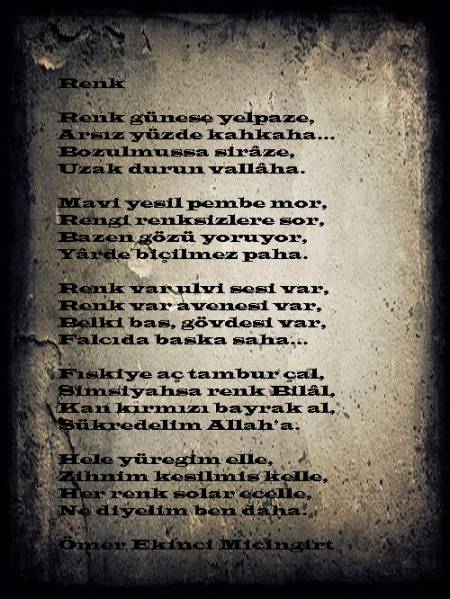 Renk
Renk günese yelpaze,
Arsız yüzde kahkaha...
Bozulmussa sirâze,
Uzak durun vallâha.
Mavi yesil pembe mor,
Rengi renksizlere sor,
Bazen gözü yoruyor,
Yârde biçilmez paha.
Renk var ulvi sesi var,
Renk var avenesi var,
Belki bas, gövdesi var,
Falcıda baska saha...
Fıskiye aç tambur çal,
Simsiyahsa renk Bilâl,
Kan kırmızı bayrak al,
Sükredelim Allah'a.
Hele yüregim elle,
Zihnim kesilmis kelle,
Her renk solar ecelle,
Ne diyelim ben daha.
Ömer Ekinci Micingirt